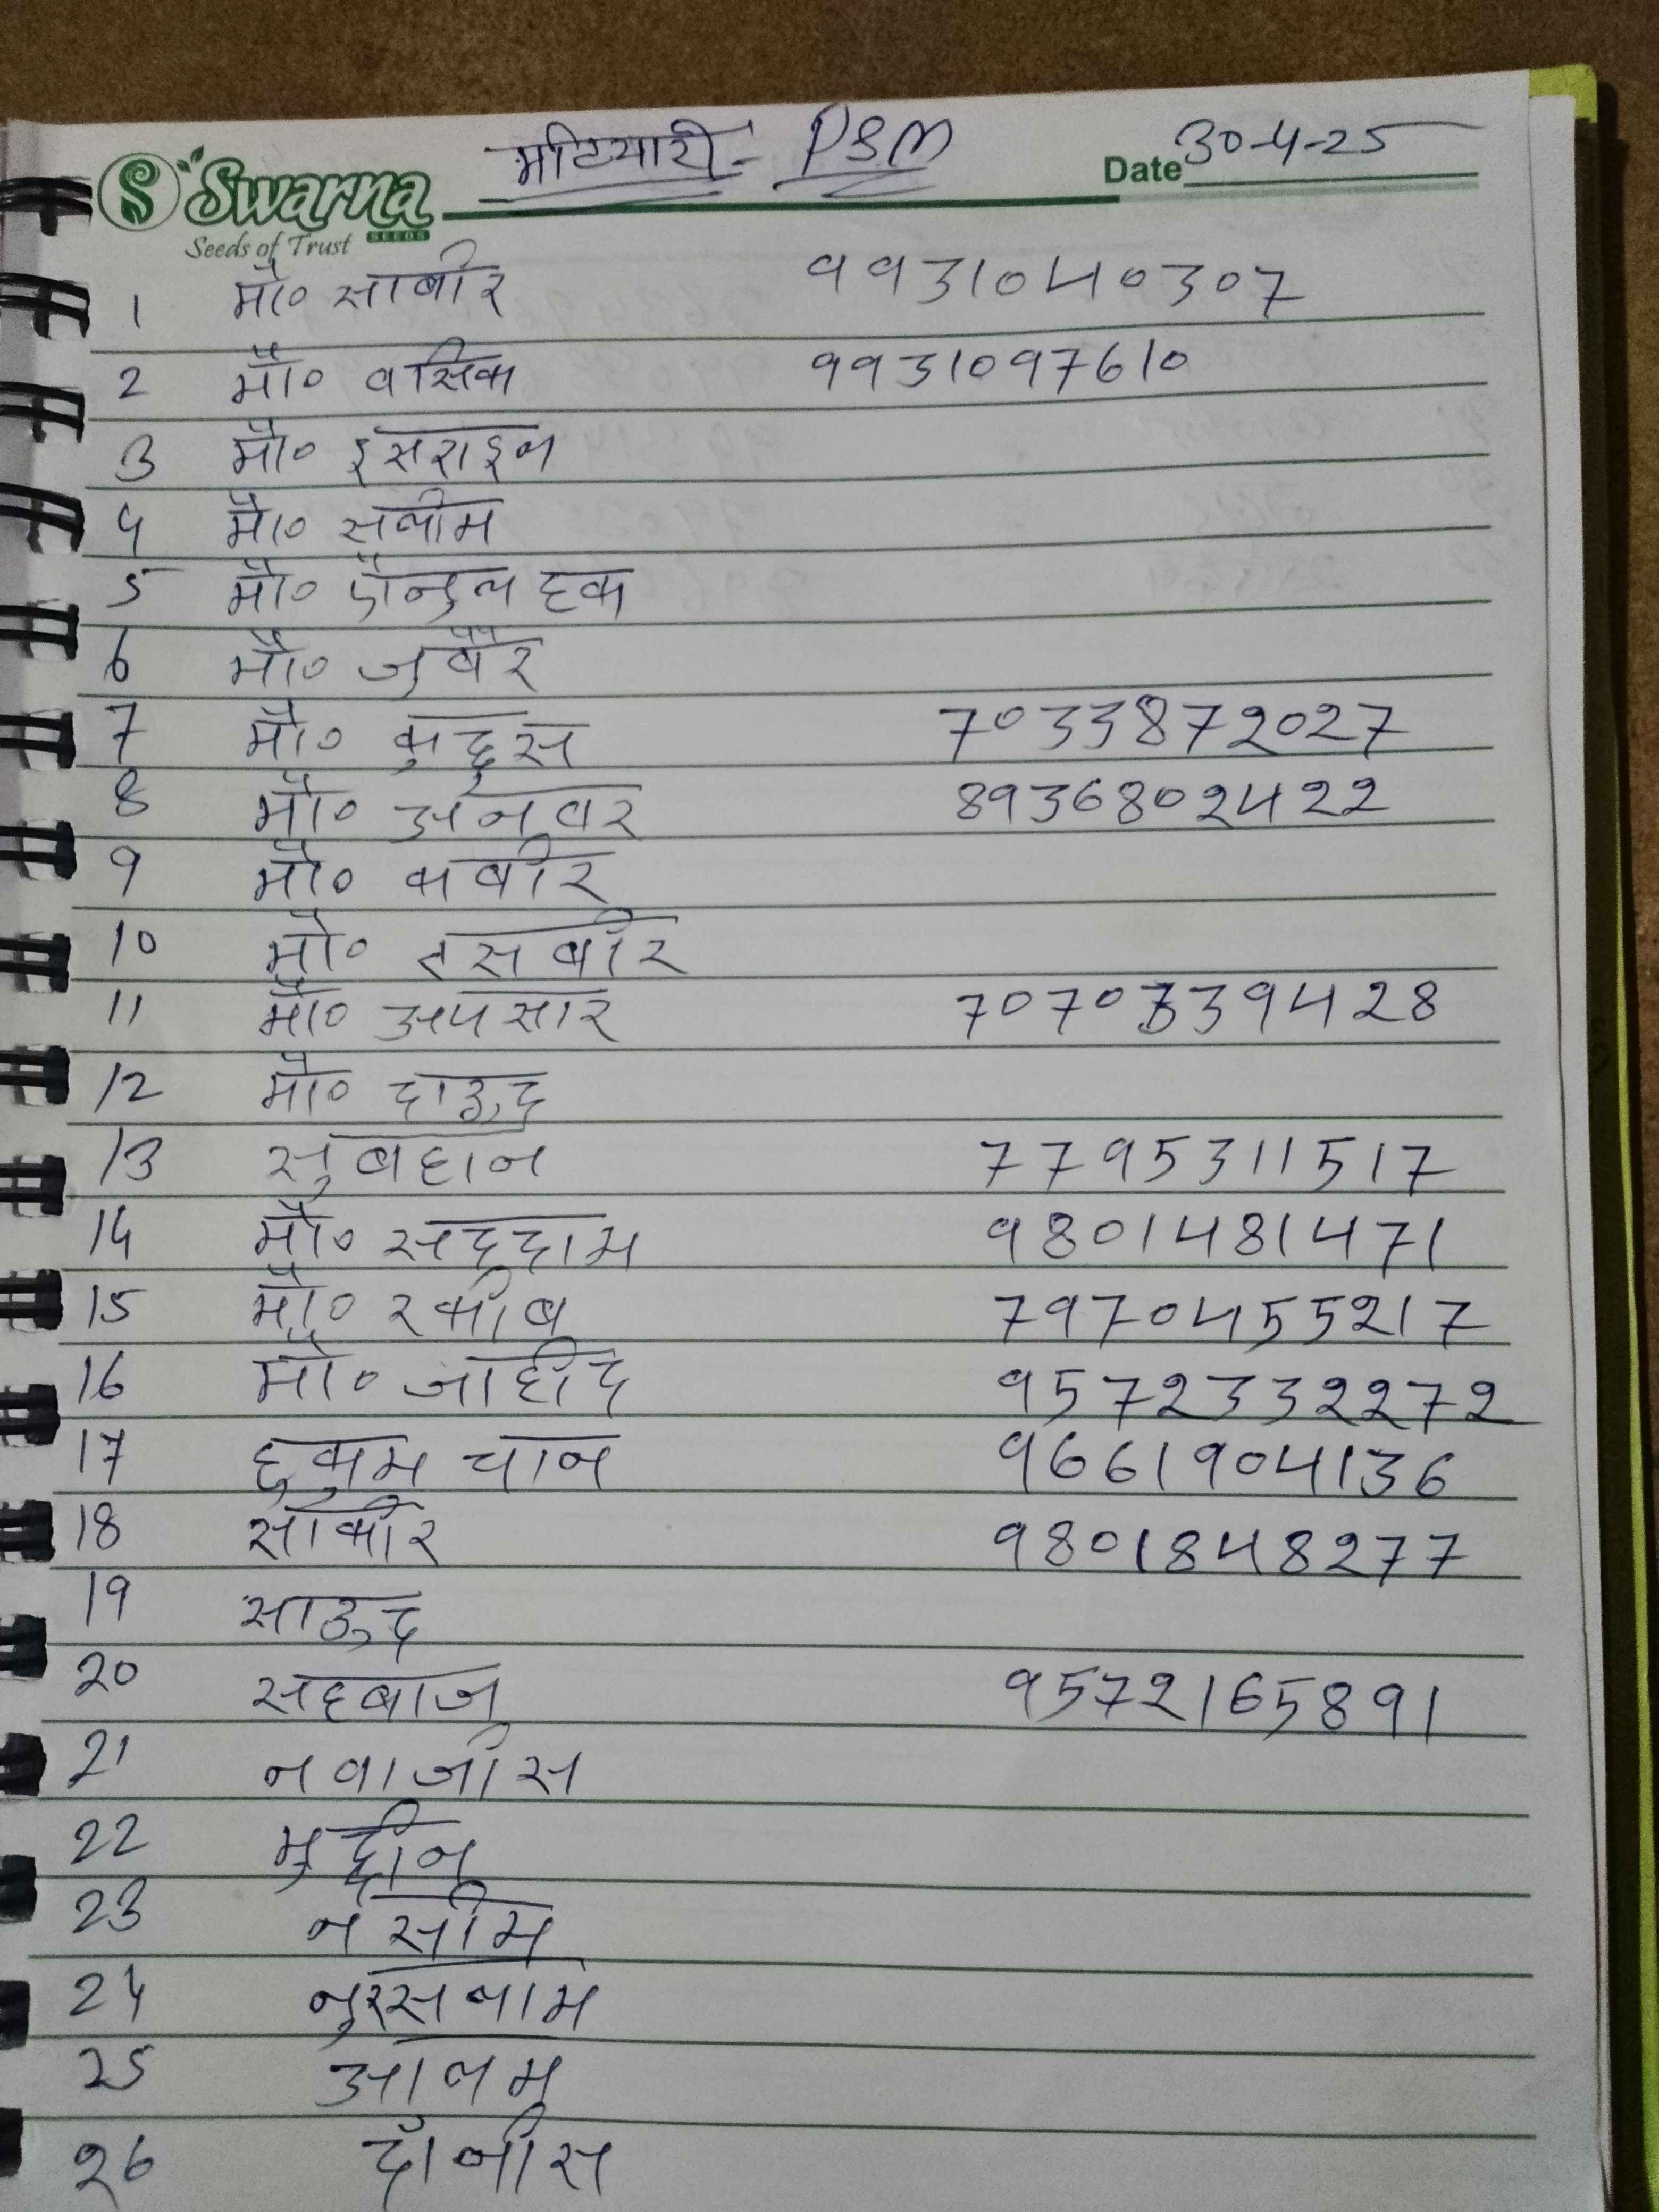 Swarna
SEEDS
Seeds of Trust
मटियारी - PSM
Date 30-4-25
1 मो० साबीर 9931040307
2 मो० वसिक 9931097610
3 मो० इसराइल
4 मो० सलीम
5 मो० ऐनुल हक
6 मो० जुबैर
7 मो० कुद्दुस 7033872027
8 मो० अनवर 8936802422
9 मो० कबीर
10 मो० तसबीर
11 मो० अपसार 7070339428
12 मो० दाऊद
13 सुबहान 7795311517
14 मो० सददाम 9801481471
15 मो० रकीब 7970455217
16 मो० जाहीद 9572332272
17 हुकुम चान 9661904136
18 साकीर 9801848277
19 साऊद
20 सहबाज 9572165891
21 नवाजीस
22 मुद्दीन
23 नसीम
24 नुरसलाम
25 आलम
26 दानीस